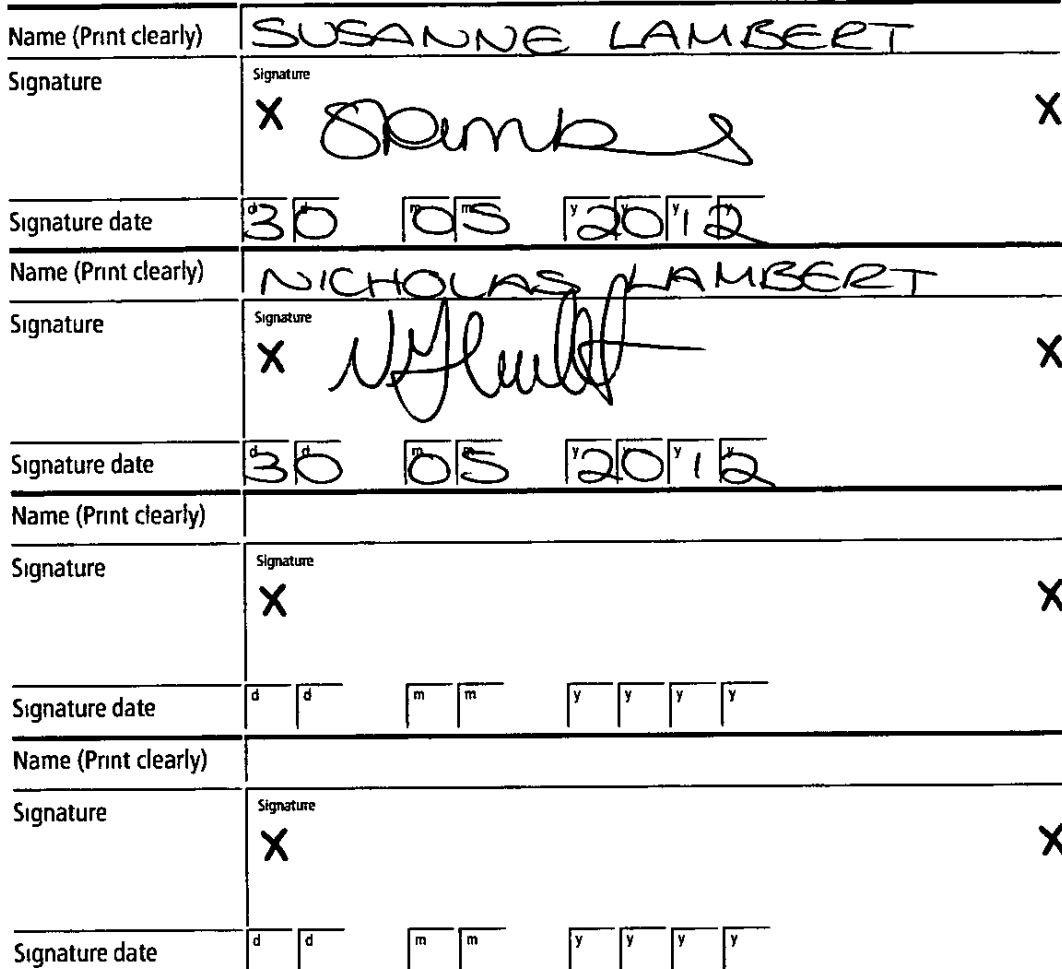 Name (Print clearly) SUSANNE LAMBERT
Signature Signature
X X
Signature date d d m m y y y y 30 05 2012
Name (Print clearly) NICHOLAS LAMBERT
Signature Signature
X X
Signature date d d m m y y y y 30 05 2012
Name (Print clearly)
Signature Signature
X X
Signature date d d m m y y y y
Name (Print clearly)
Signature Signature
X X
Signature date d d m m y y y y